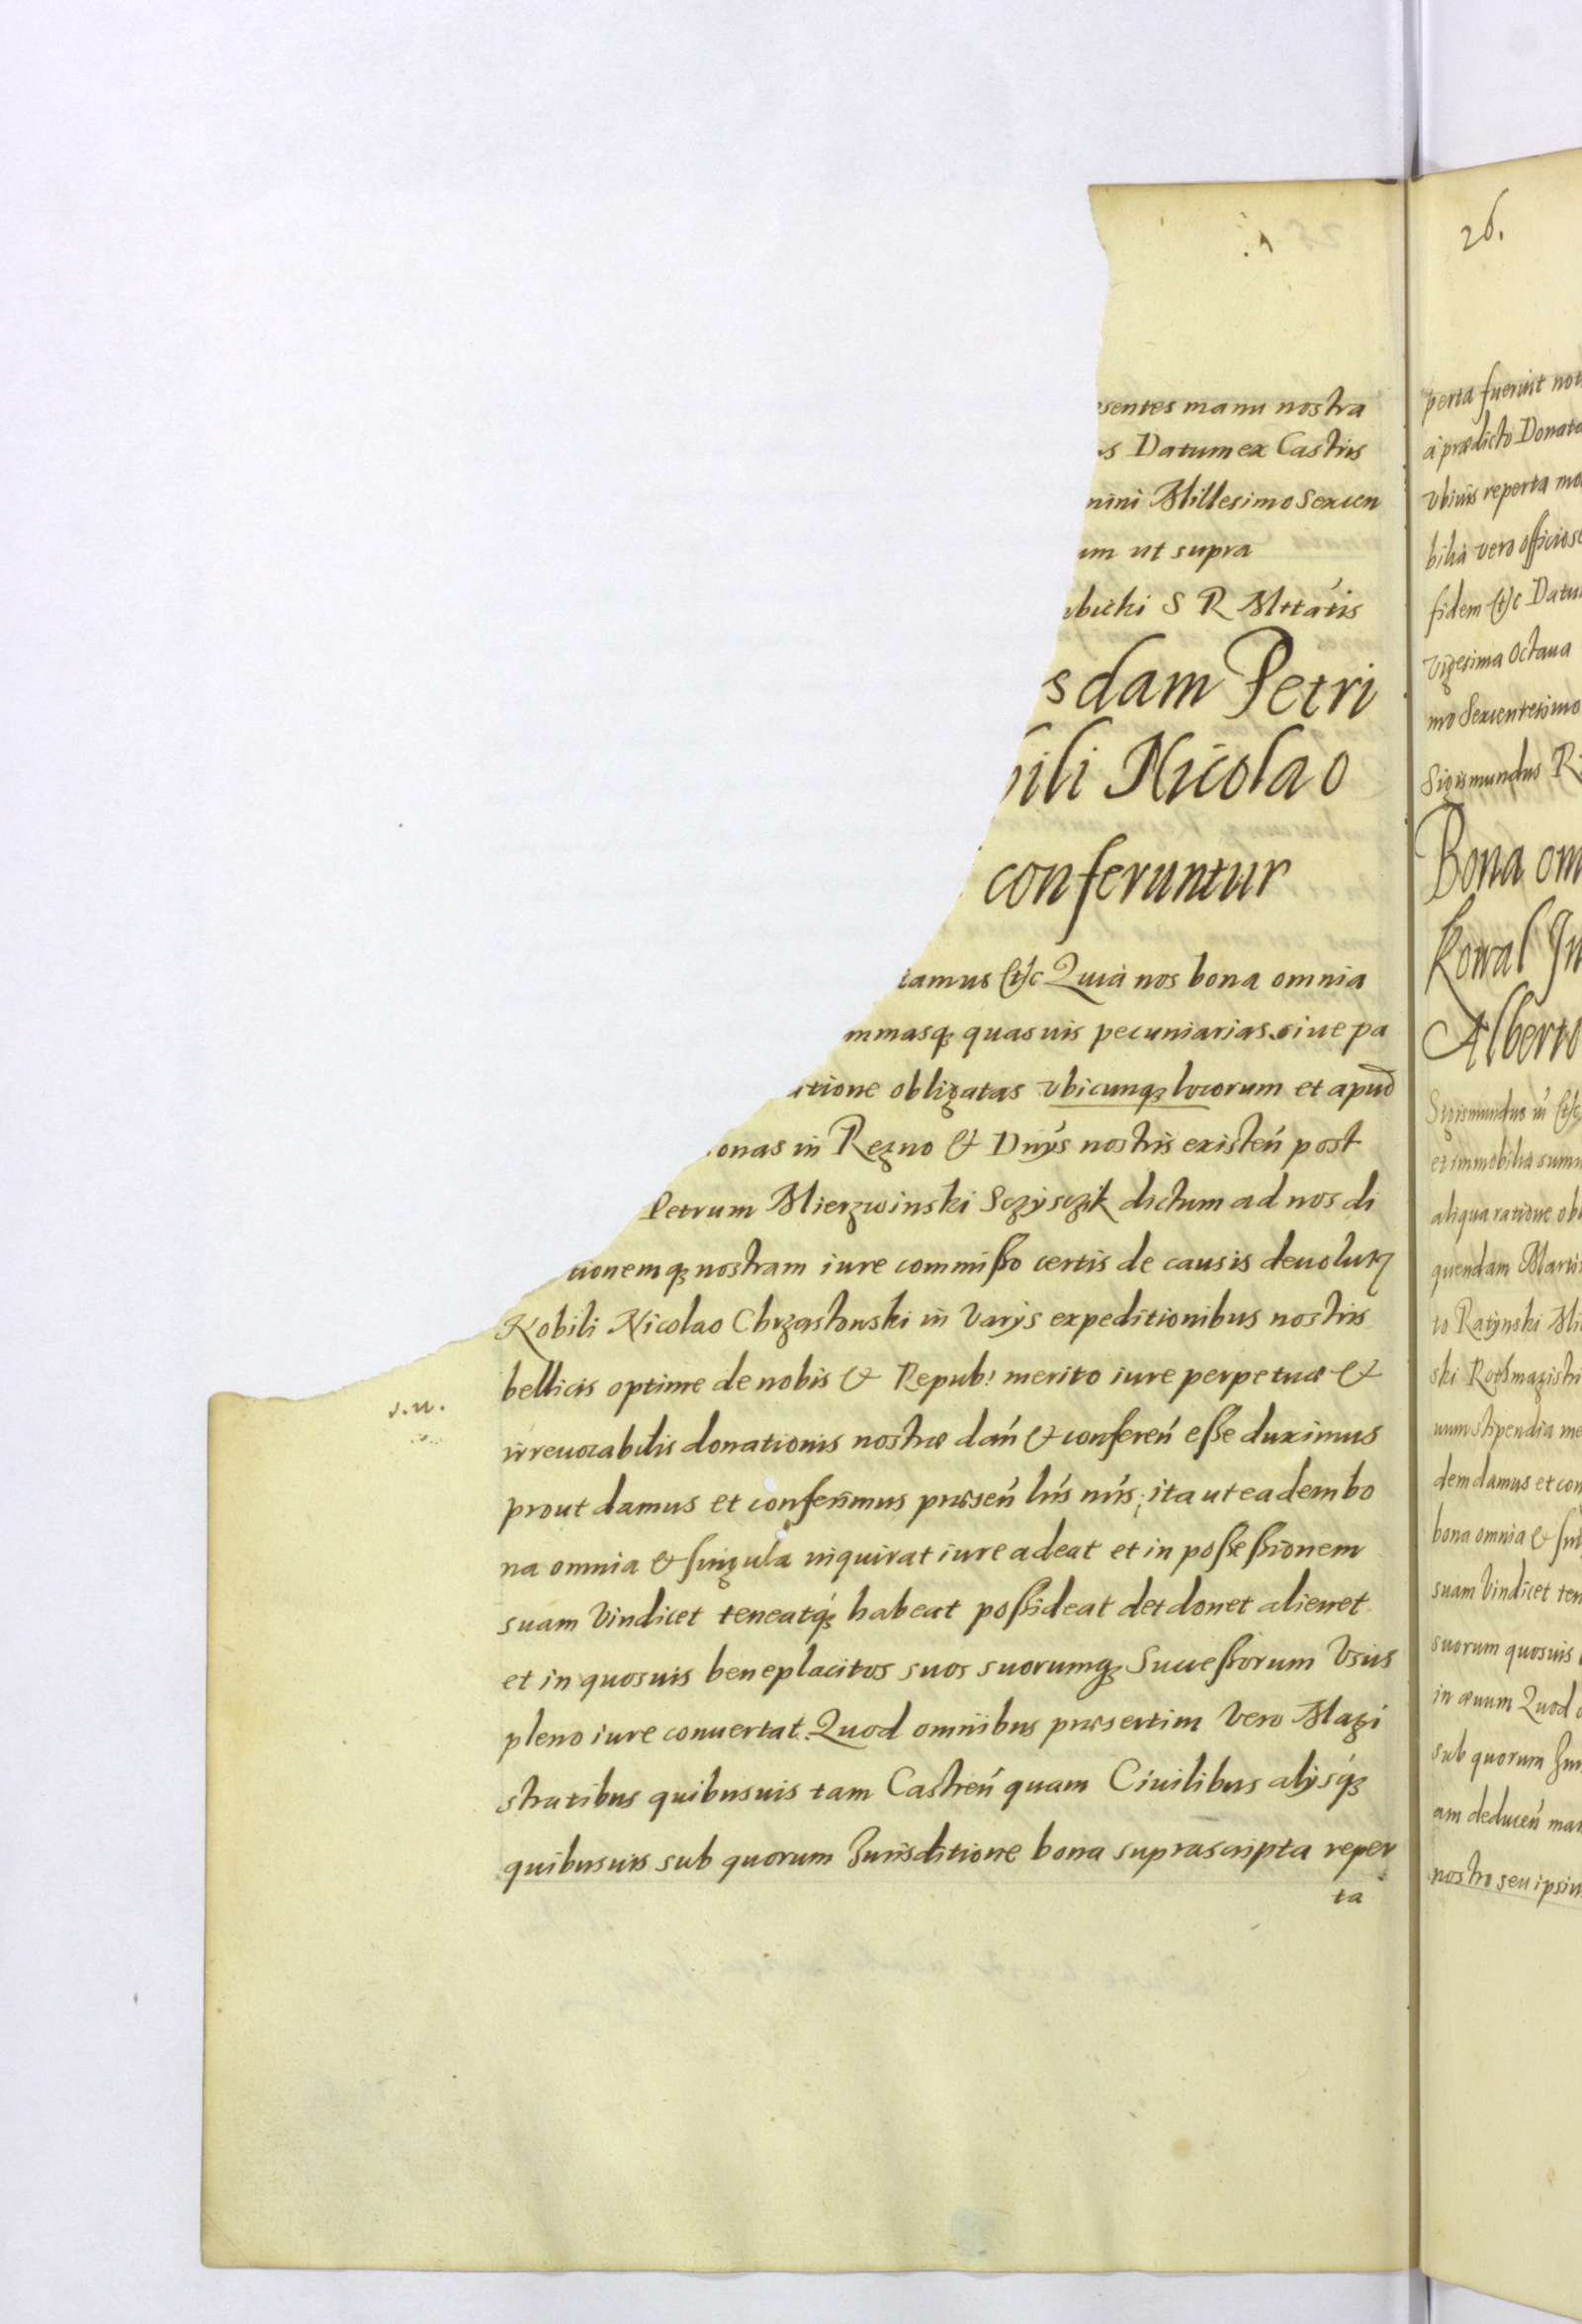 esentes manu nostra
s Datum ex Castris
mini Millesimo Sexcen
um ut supra
bicki S R Mttatis
sdam Petri
bili Nicolao
conferuntur
tamus etc Quia nos bona omnia
mmasq quasuis pecuniarias siue pa
atione obligatas vbicunq locorum et apud
onas in Regno & Dnys nostris existen post
Petrum Mierzwinski Sczysczik dictum ad nos di
tionemq nostram iure commisso certis de causis deuolut
Nobili Nicolao Chrzastowski in Varys expeditionibus nostris
bellicis optime de nobis & Repub: merito iure perpetuæ &
s.n.
irreuocabilis donationis nostræ dan & conferen esse duximus
prout damus et conferimus præsen lris nris; ita ut eadem bo
na omnia & singula inquirat iure adeat et in possessionem
suam Vindicet teneatq habeat possideat det donet alienet
et in quosuis beneplacitos suos suorumq Successorum Vsus
pleno iure conuertat. Quod omnibus præsertim Vero Magi
stratibus quibusuis tam Castren quam Ciuilibus alysq
quibusuis sub quorum Jurisditione bona suprascripta reper
ta
26.
perta fuerint not
à prædicto Donata
vbiuis reperta mo
bilia vero officiose
fidem etc Datu
Vigesima Octaua
mo Sexcentesimo
Sigismundus R
Bona om
Kowal In
Alberto
Sigismundus etc
et immobilia summ
aliqua ratione obl
quendam Martin
to Ratynski Mi
ski Rothmagistri
num stipendia me
dem damus et con
bona omnia & sin
suam Vindicet ten
suorum quosuis
in æuum Quod o
sub quorum Jur
am deducen man
nostro seu ipsiu